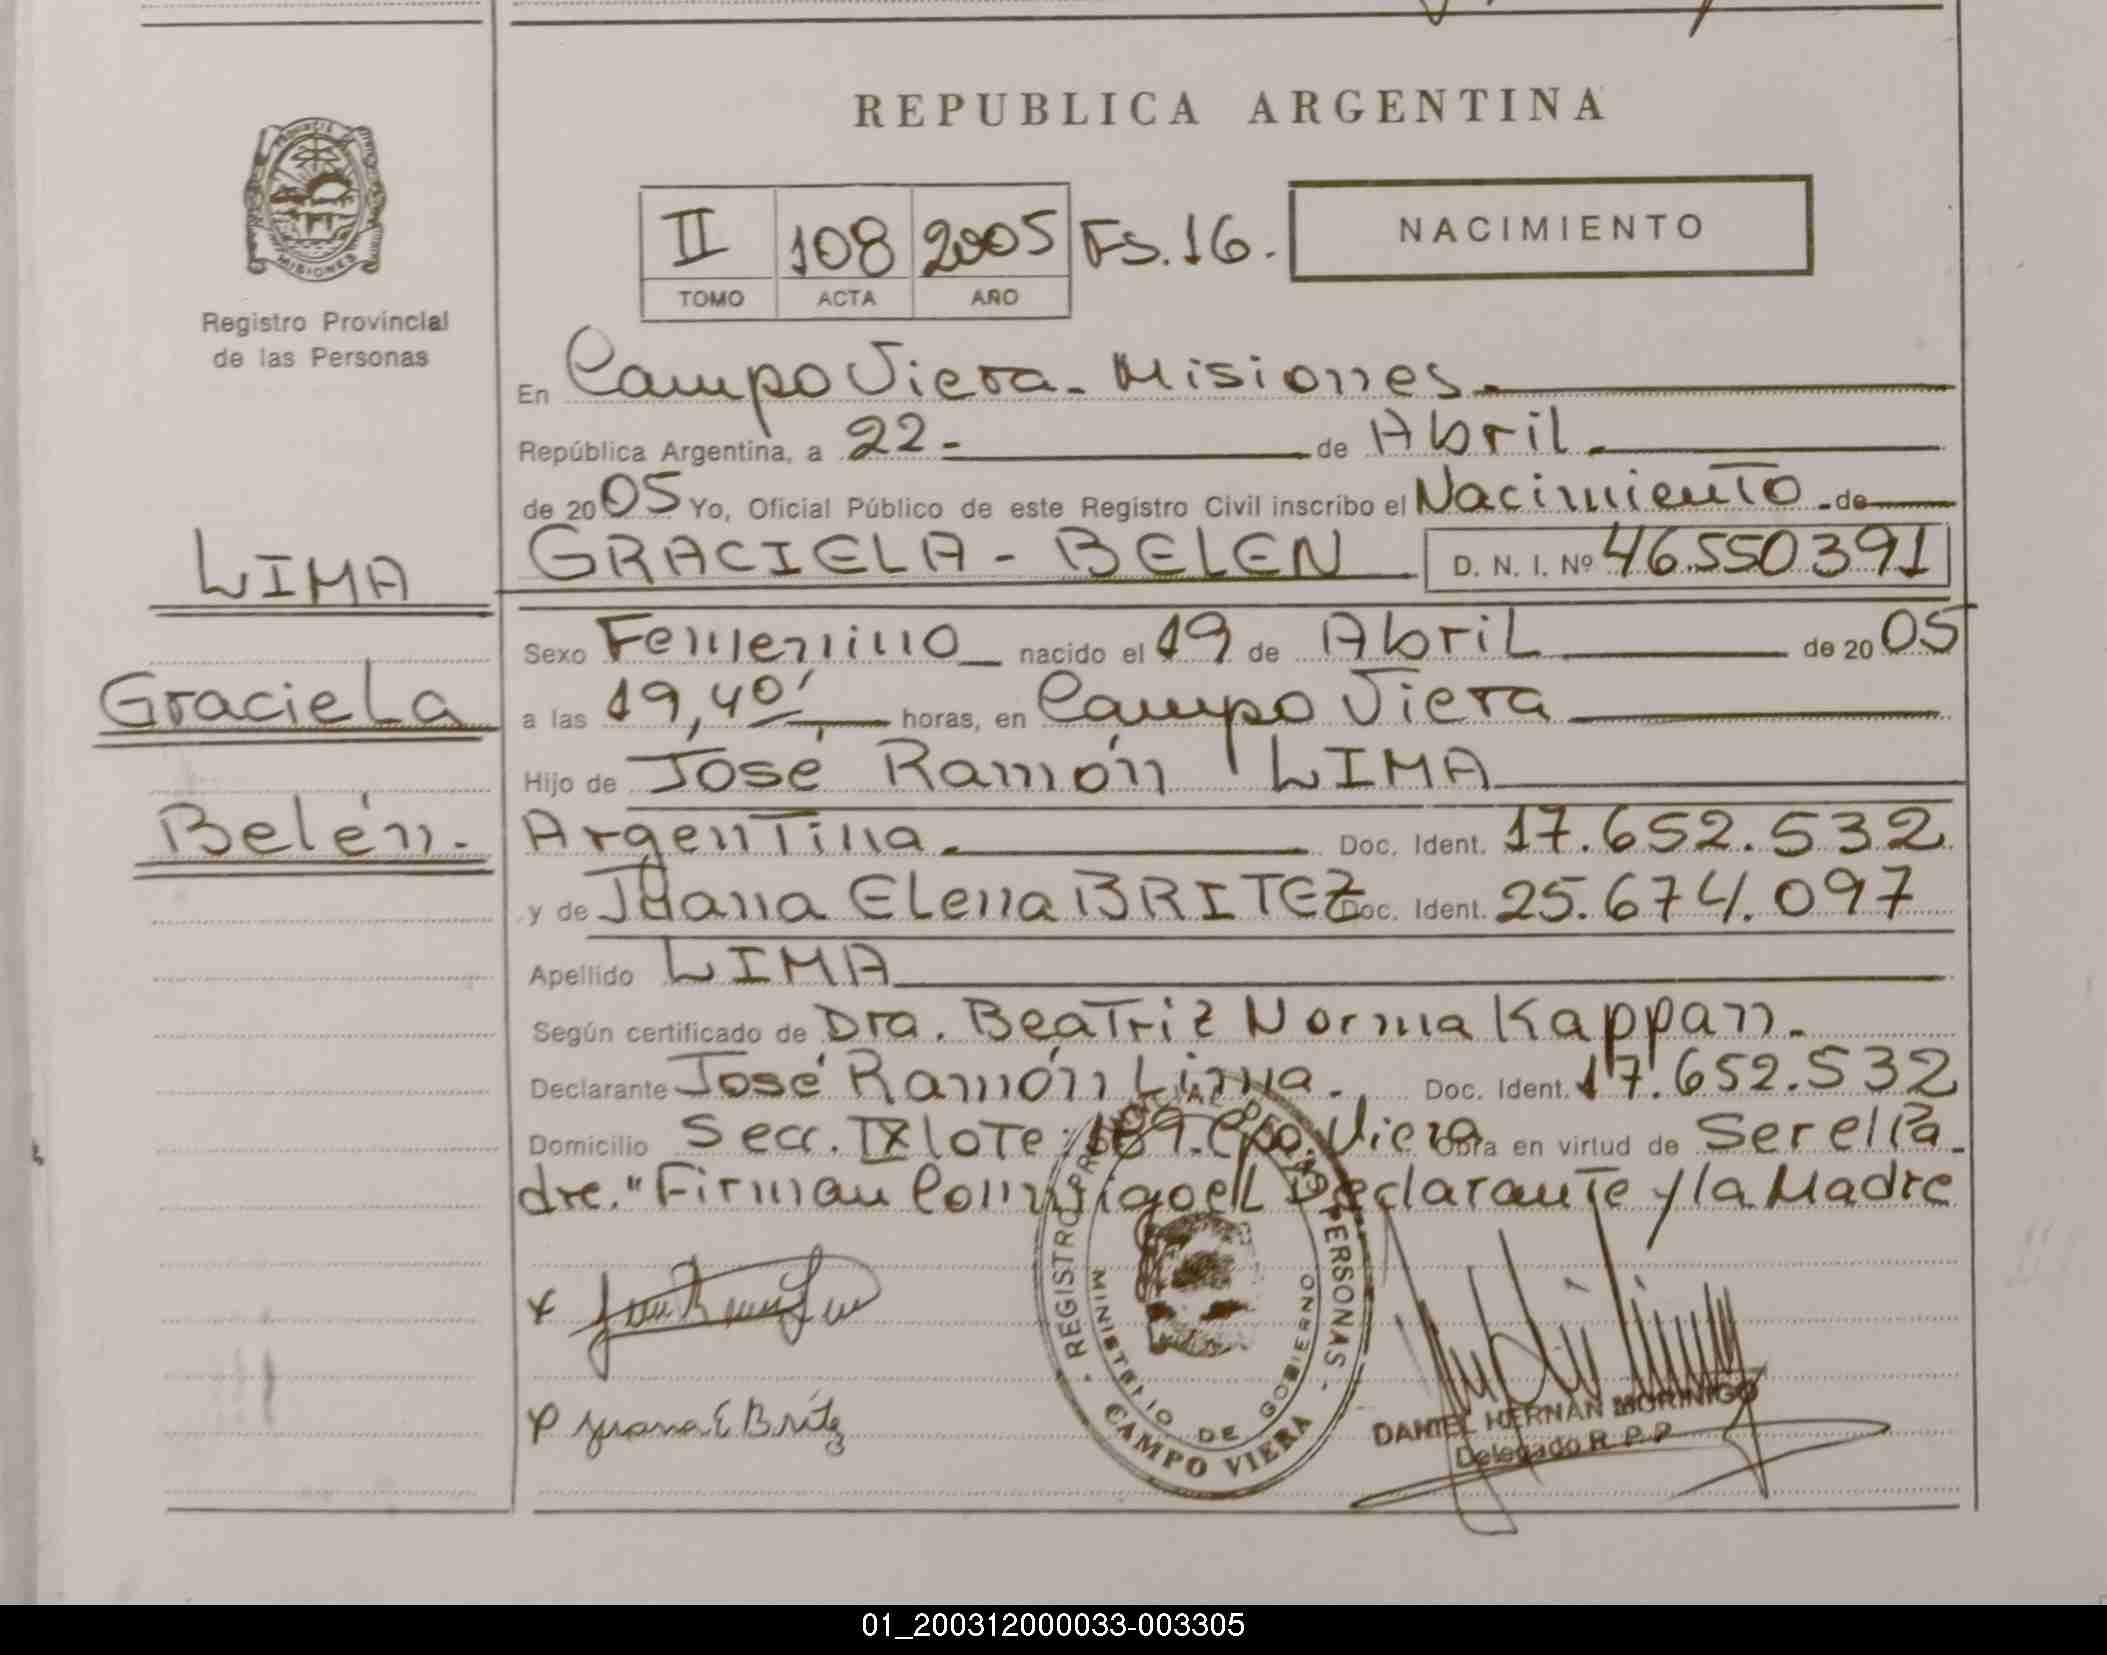 REPUBLICA ARGENTINA
PROVINCIA DE MISIONES
Registro Provincial
de las Personas
II 108 2005 Fs. 16.
TOMO ACTA AÑO
NACIMIENTO
En Campo Viera - Misiones.
República Argentina, a 22 - de Abril.
de 2005 Yo, Oficial Público de este Registro Civil inscribo el Nacimiento de
LIMA
GRACIELA - BELEN D. N. I. Nº 46.550.391
Sexo Femenino nacido el 19 de Abril de 2005
Graciela
a las 19,40' horas, en Campo Viera
Hijo de José Ramón LIMA
Belén.
Argentina. Doc. Ident. 17.652.532
y de Juana Elena BRITEZ Doc. Ident. 25.674.097
Apellido LIMA
Según certificado de Dra. Beatriz Norma Kappan.
Declarante José Ramón Lima. Doc. Ident. 17.652.532
Domicilio Secc. IX lote 169. Cpo. Viera Obra en virtud de Ser el Pa-
dre." Firman Conmigo el Declarante y la Madre
Juana E Britez
REGISTRO PROVINCIAL DE LAS PERSONAS
MINISTERIO DE GOBIERNO
CAMPO VIERA
DANIEL HERNAN MORINIGO
Delegado R. P. P.
01_200312000033-003305